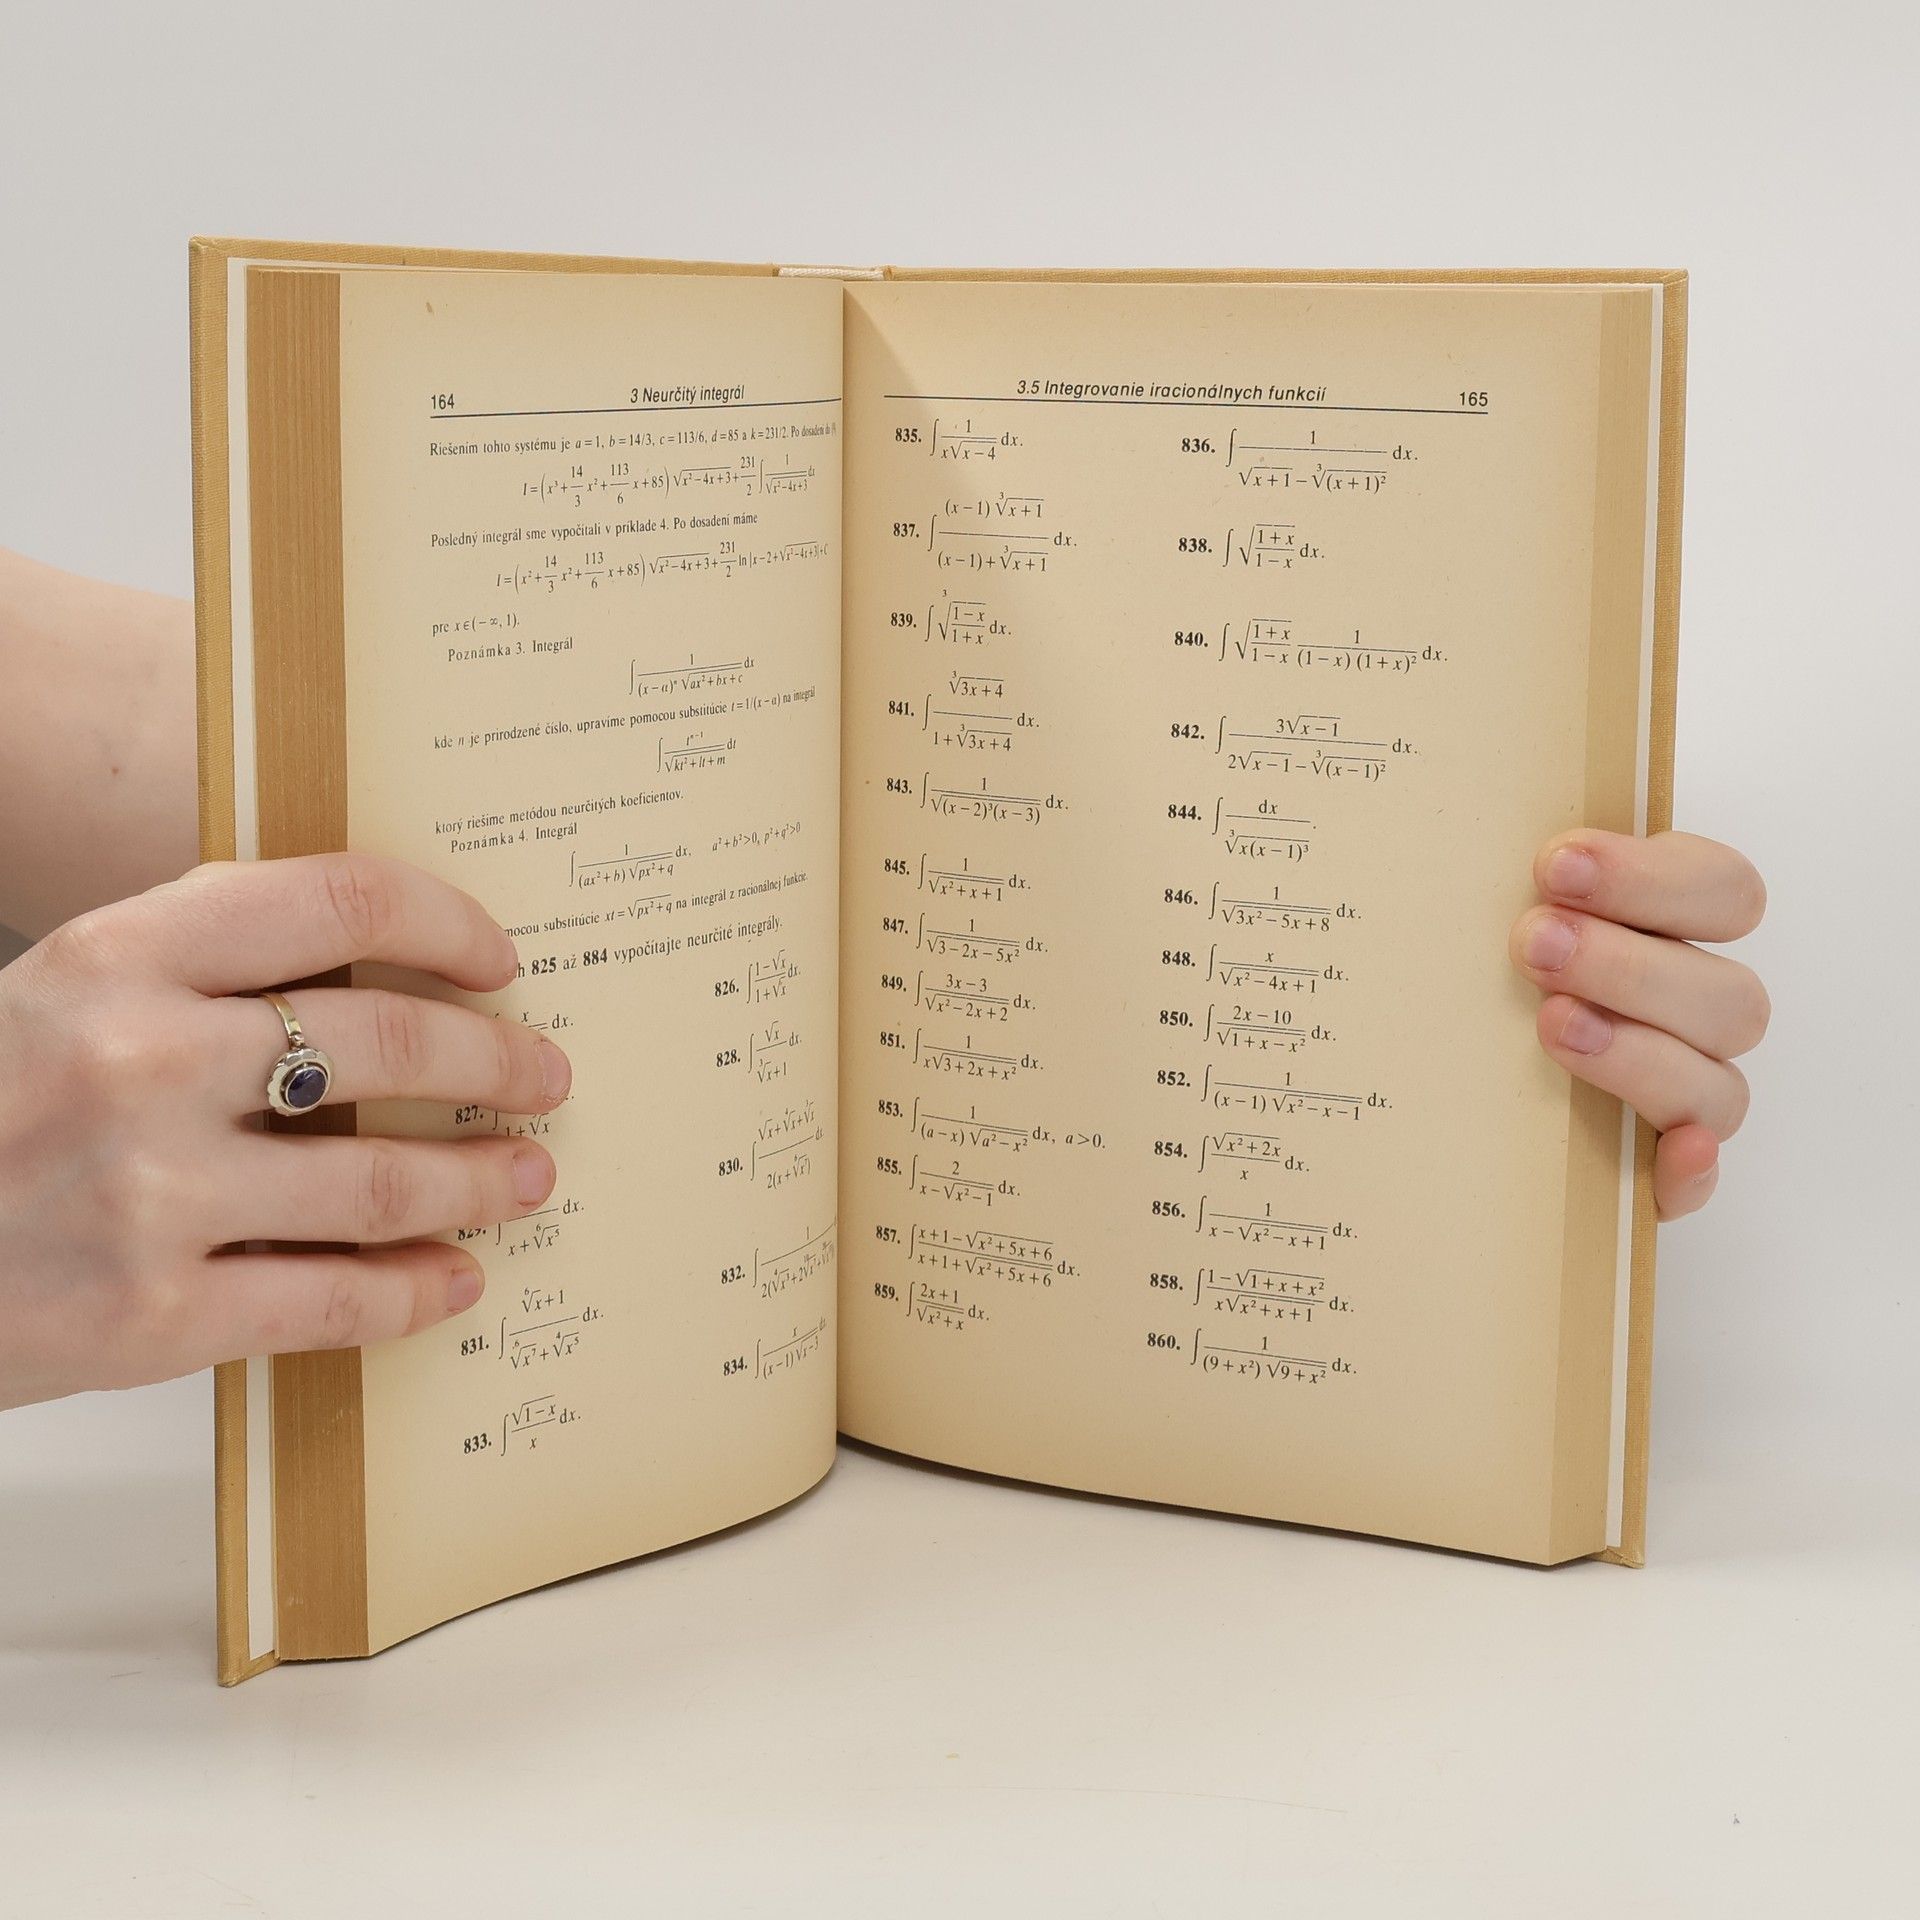 164 3 Neurčitý integrál
Riešením tohto systému je a = 1, b = 14/3, c = 113/6, d = 85 a k = 231/2. Po dosadení do
I = (x³ + 14/3 x² + 113/6 x + 85) √(x² − 4x + 3) + 231/2 ∫ 1/√(x² − 4x + 3) dx
Posledný integrál sme vypočítali v príklade 4. Po dosadení máme
I = (x² + 14/3 x² + 113/6 x + 85) √(x² − 4x + 3) + 231/2 ln |x − 2 + √(x² − 4x + 3)| + C
pre x ∈ (− ∞, 1).
Poznámka 3. Integrál
∫ 1/((x − α)ⁿ √(ax² + bx + c)) dx
kde n je prirodzené číslo, upravíme pomocou substitúcie t = 1/(x − α) na integrál
∫ tⁿ⁻¹/√(kt² + lt + m) dt
ktorý riešime metódou neurčitých koeficientov.
Poznámka 4. Integrál
∫ 1/((ax² + b) √(px² + q)) dx, a² + b² > 0, p² + q² > 0
mocou substitúcie xt = √(px² + q) na integrál z racionálnej funkcie.
h 825 až 884 vypočítajte neurčité integrály.
x dx. 826. ∫ (1 − √x)/(1 + √x) dx.
827. ∫ 1 + √x 828. ∫ √x/(∛x + 1) dx.
829. ∫ x + ⁶√x⁵ dx. 830. ∫ 2(x + ⁶√x⁷) dx
831. ∫ (⁶√x + 1)/(⁶√x⁷ + ⁴√x⁵) dx. 832. ∫ 1
833. ∫ √(1 − x)/x dx. 834. ∫ x/((x − 1) √(x − 3)) dx
3.5 Integrovanie iracionálnych funkcií 165
835. ∫ 1/(x√(x − 4)) dx. 836. ∫ 1/(√(x + 1) − ∛((x + 1)²)) dx.
837. ∫ ((x − 1) ∛(x + 1))/((x − 1) + ∛(x + 1)) dx. 838. ∫ √((1 + x)/(1 − x)) dx.
839. ∫ ∛((1 − x)/(1 + x)) dx. 840. ∫ √((1 + x)/(1 − x)) 1/((1 − x) (1 + x)²) dx.
841. ∫ ∛(3x + 4)/(1 + ∛(3x + 4)) dx. 842. ∫ 3√(x − 1)/(2√(x − 1) − ∛((x − 1)²)) dx.
843. ∫ 1/√((x − 2)³(x − 3)) dx. 844. ∫ dx/∛(x(x − 1)³).
845. ∫ 1/√(x² + x + 1) dx. 846. ∫ 1/√(3x² − 5x + 8) dx.
847. ∫ 1/√(3 − 2x − 5x²) dx. 848. ∫ x/√(x² − 4x + 1) dx.
849. ∫ (3x − 3)/√(x² − 2x + 2) dx. 850. ∫ (2x − 10)/√(1 + x − x²) dx.
851. ∫ 1/(x√(3 + 2x + x²)) dx. 852. ∫ 1/((x − 1) √(x² − x − 1)) dx.
853. ∫ 1/((a − x) √(a² − x²)) dx, a > 0. 854. ∫ √(x² + 2x)/x dx.
855. ∫ 2/(x − √(x² − 1)) dx. 856. ∫ 1/(x − √(x² − x + 1)) dx.
857. ∫ (x + 1 − √(x² + 5x + 6))/(x + 1 + √(x² + 5x + 6)) dx. 858. ∫ (1 − √(1 + x + x²))/(x√(x² + x + 1)) dx.
859. ∫ (2x + 1)/√(x² + x) dx. 860. ∫ 1/((9 + x²) √(9 + x²)) dx.